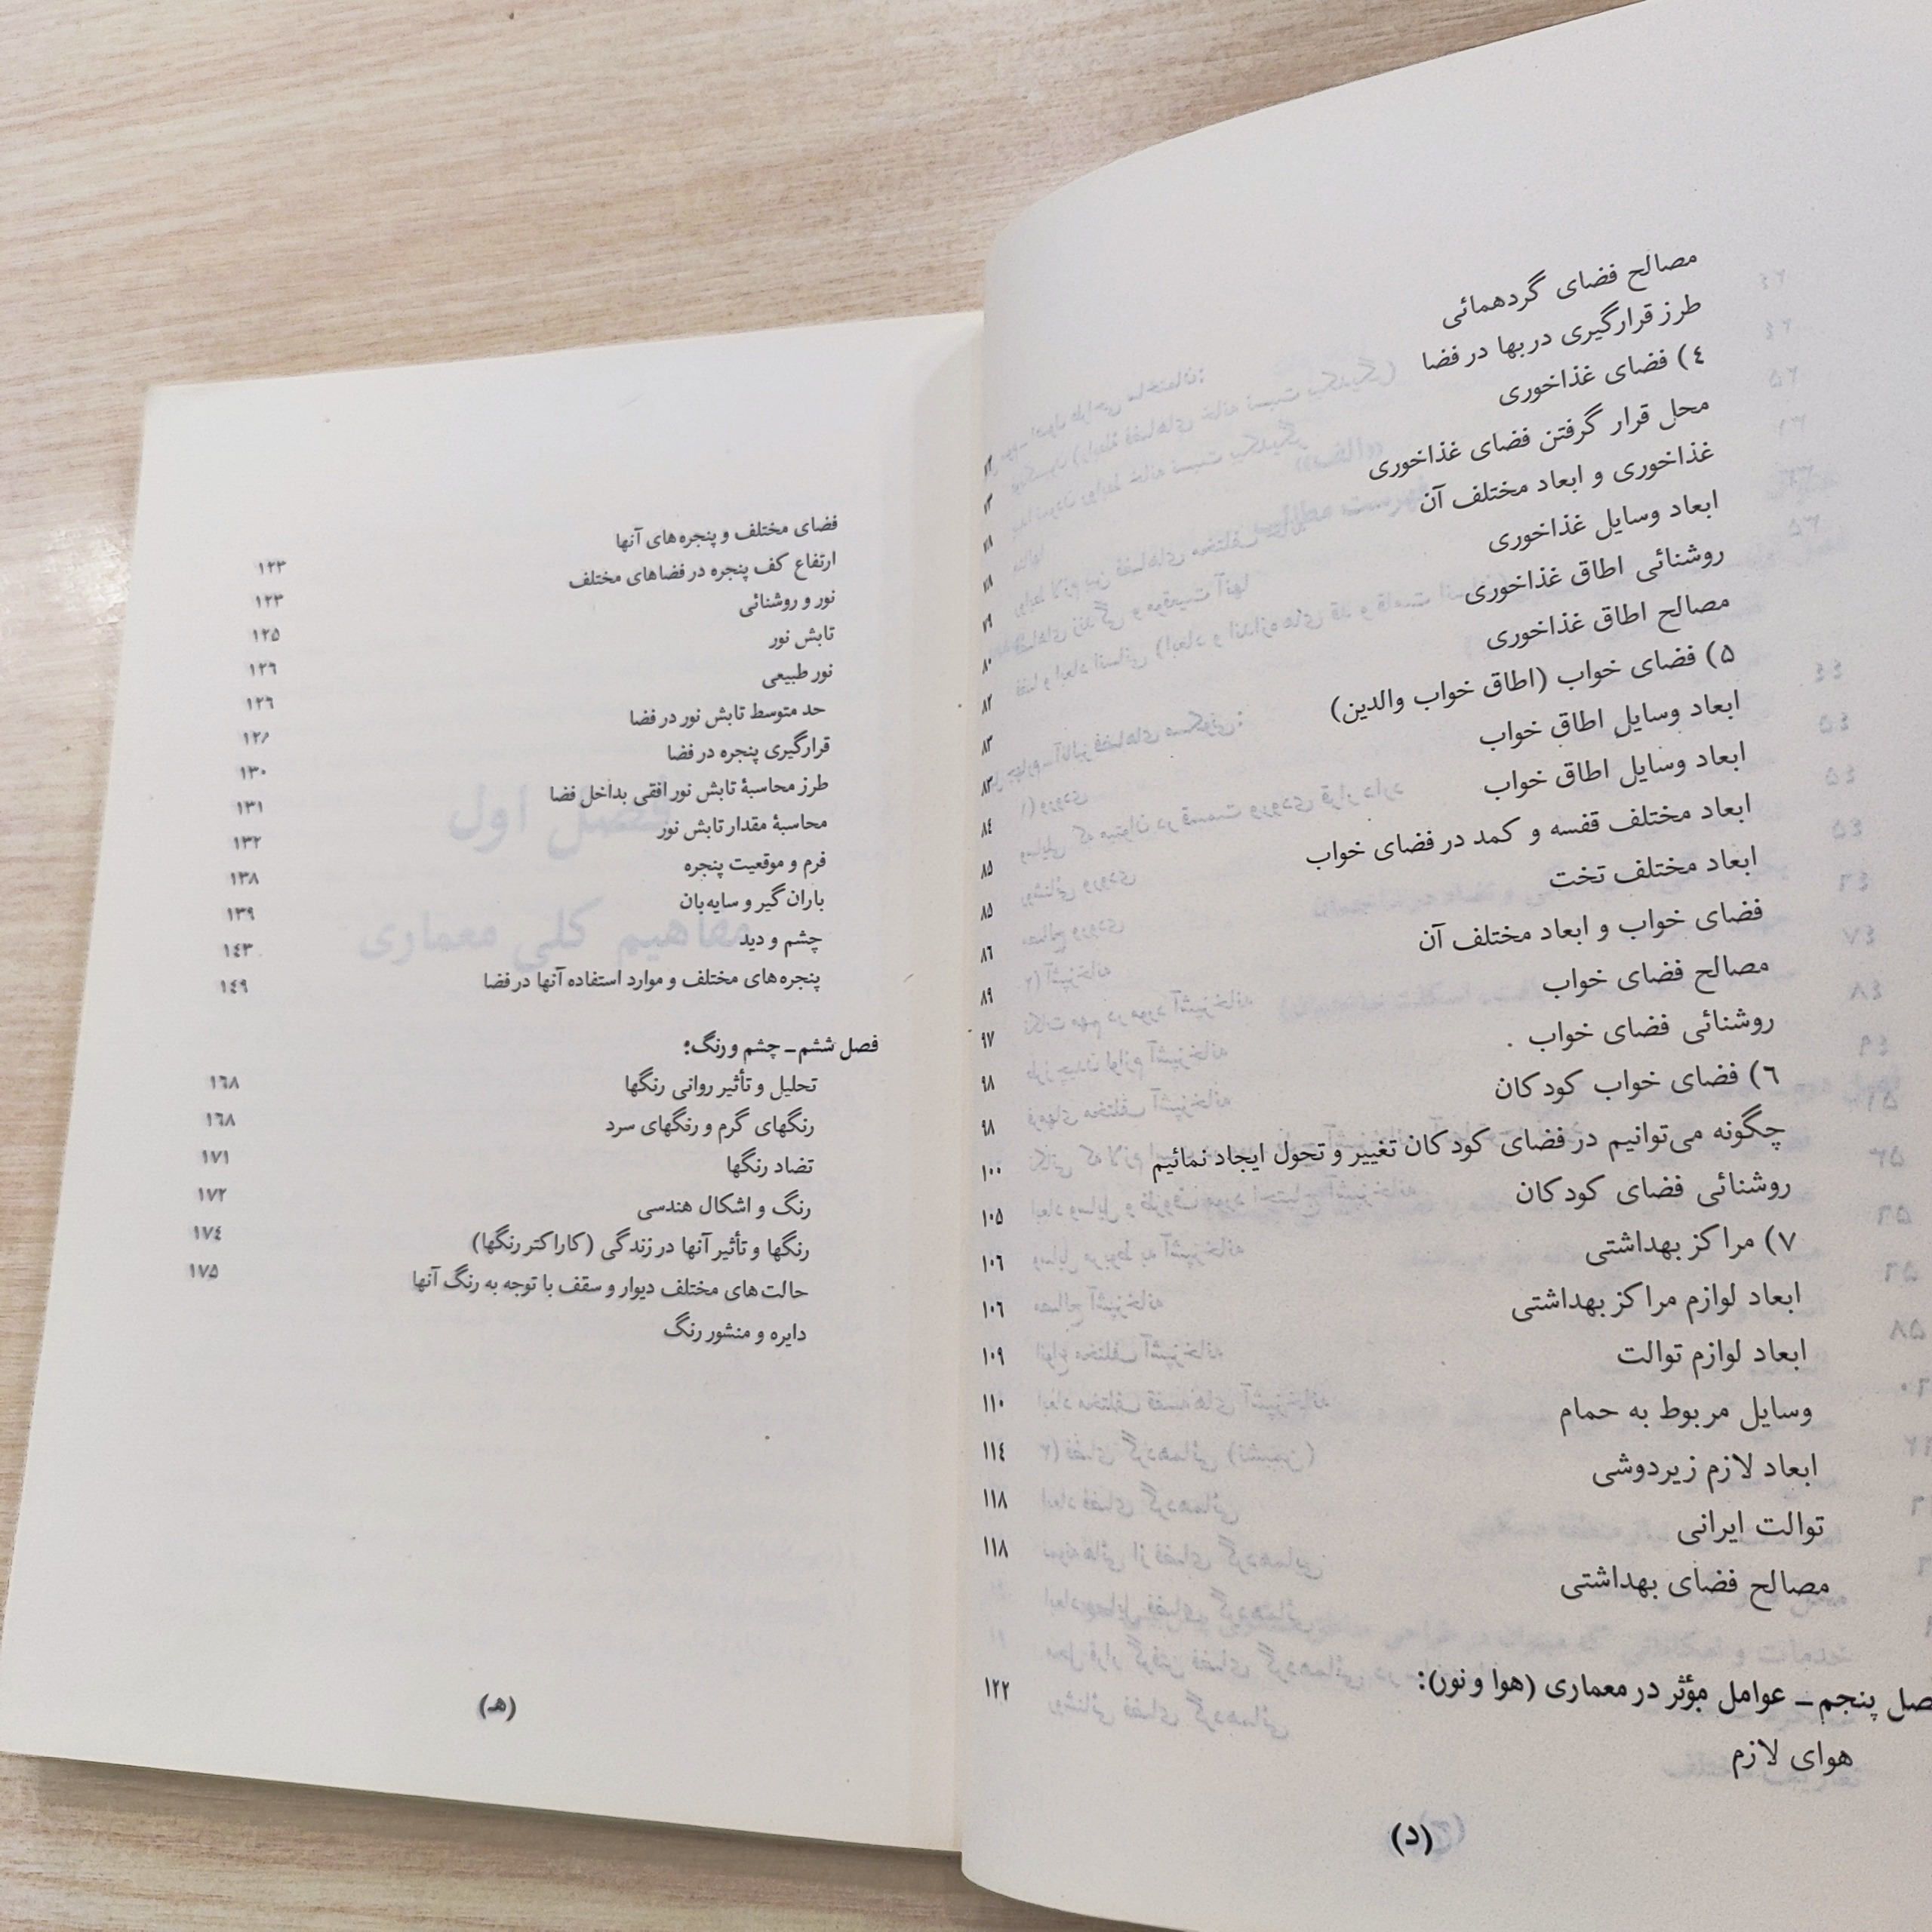 مصالح فضای گردهمائی
طرز قرارگیری دربها در فضا
٤) فضای غذاخوری ۷۸
محل قرار گرفتن فضای غذاخوری ۷۸
غذاخوری و ابعاد مختلف آن ۷۹
ابعاد وسایل غذاخوری ۸۰
روشنائی اطاق غذاخوری ۸۲
مصالح اطاق غذاخوری ۸۳
۵) فضای خواب (اطاق خواب والدین) ۸۳
ابعاد وسایل اطاق خواب ۸٤
ابعاد وسایل اطاق خواب ۸۵
ابعاد مختلف قفسه و کمد در فضای خواب ۸۵
ابعاد مختلف تخت ۸٦
فضای خواب و ابعاد مختلف آن ۸۹
مصالح فضای خواب ۹۷
روشنائی فضای خواب ۹۸
٦) فضای خواب کودکان ۹۸
چگونه می‌توانیم در فضای کودکان تغییر و تحول ایجاد نمائیم ۱۰۰
روشنائی فضای کودکان ۱۰۵
۷) مراکز بهداشتی ۱۰٦
ابعاد لوازم مراکز بهداشتی ۱۰٦
ابعاد لوازم توالت ۱۰۹
وسایل مربوط به حمام ۱۱۰
ابعاد لازم زیردوشی ۱۱٤
توالت ایرانی ۱۱۸
مصالح فضای بهداشتی ۱۱۸
صل پنجم ـ عوامل مؤثر در معماری (هوا و نور):
هوای لازم ۱۲۲
(د)
فضای مختلف و پنجره‌های آنها ۱۲۳
ارتفاع کف پنجره در فضاهای مختلف ۱۲۳
نور و روشنائی ۱۲۵
تابش نور ۱۲٦
نور طبیعی ۱۲٦
حد متوسط تابش نور در فضا
قرارگیری پنجره در فضا ۱۳۰
طرز محاسبهٔ تابش نور افقی بداخل فضا ۱۳۱
محاسبهٔ مقدار تابش نور ۱۳۲
فرم و موقعیت پنجره ۱۳۸
باران گیر و سایه‌بان ۱۳۹
چشم و دید ۱٤۳
پنجره‌های مختلف و موارد استفاده آنها در فضا ۱٤۹
فصل ششم ـ چشم و رنگ:
تحلیل و تأثیر روانی رنگها ۱٦۸
رنگهای گرم و رنگهای سرد ۱٦۸
تضاد رنگها ۱۷۱
رنگ و اشکال هندسی ۱۷۲
رنگها و تأثیر آنها در زندگی (کاراکتر رنگها) ۱۷٤
حالت‌های مختلف دیوار و سقف با توجه به رنگ آنها ۱۷۵
دایره و منشور رنگ
(هـ)